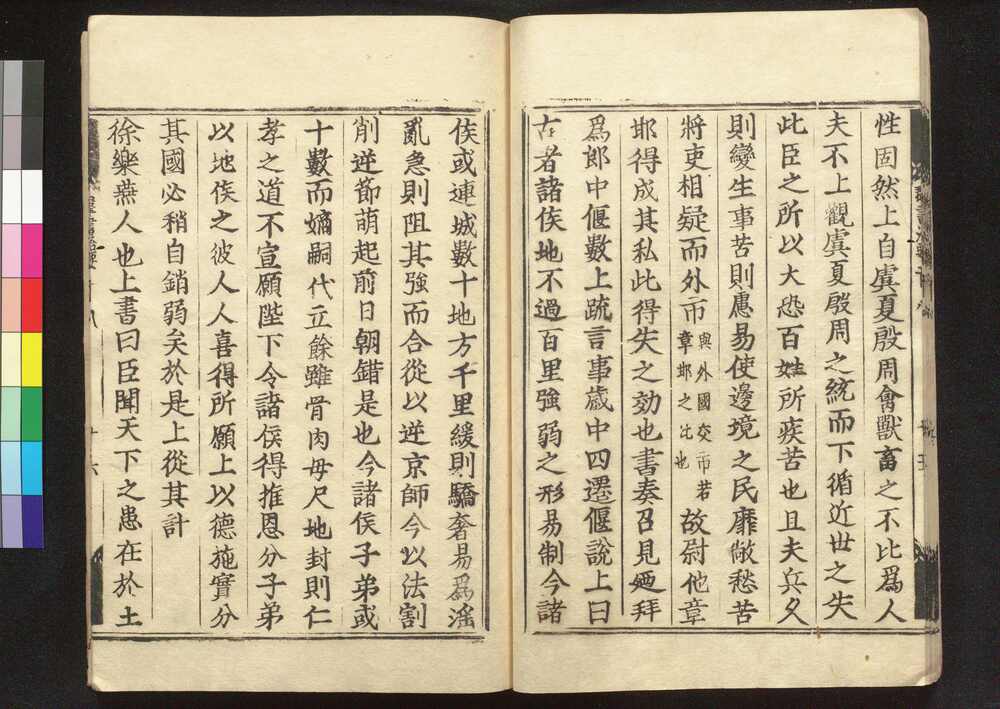 性固然上自虞夏殷周禽獸畜之不比爲人
夫不上觀虞夏殷周之統而下循近世之失
此臣之所以大恐百姓所疾苦也且夫兵久
則變生事苦則慮易使邊境之民靡敝愁苦
將吏相疑而外市與外國交市若章邯之比也故尉他章
邯得成其私此得失之効也書奏召見廼拜
爲郎中偃數上疏言事歳中四遷偃說上曰
古者諸侯地不過百里強弱之形易制今諸
侯或連城數十地方千里緩則驕奢易爲淫
亂急則阻其強而合從以逆京師今以法割
削逆節萌起前日朝錯是也今諸侯子弟或
十數而嫡嗣代立餘雖骨肉毋尺地封則仁
孝之道不宣願陛下令諸侯得推恩分子弟
以地侯之彼人人喜得所願上以德施實分
其國必稍自銷弱矣於是上從其計
徐樂燕人也上書曰臣聞天下之患在於土